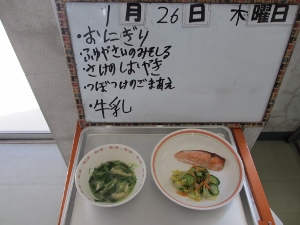 1月26日 木曜日
・おにぎり
・ふゆやさいのみそしる
・さけのしおやき
・つぼつけのごまあえ
・牛乳